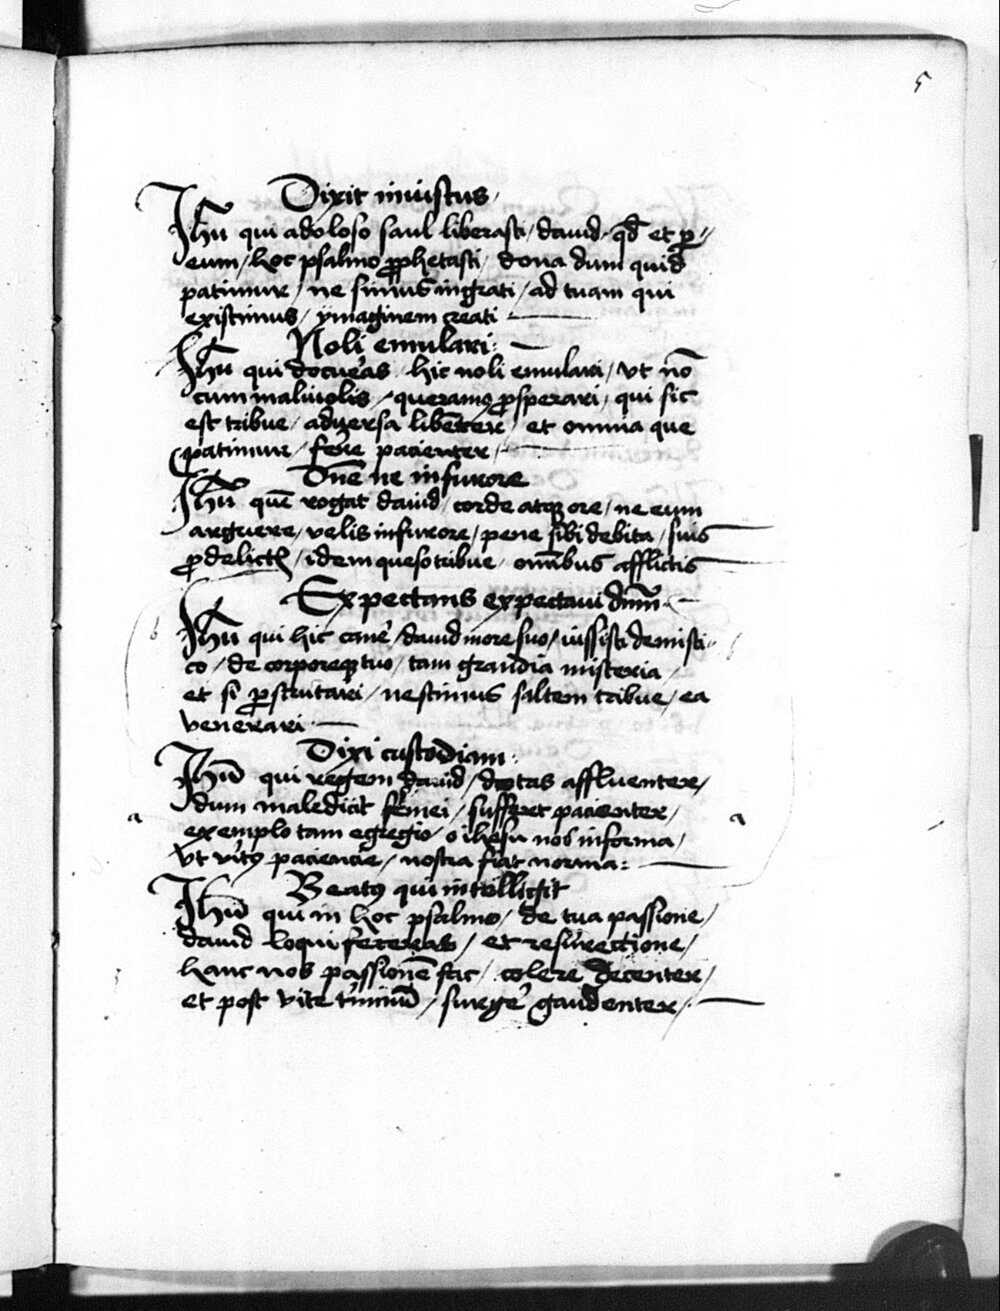 5
Dixit iniustus
Jhu qui a doloso saul liberasti / dauid / qd et p /
eum / hoc psalmo pphetasti / dona dum quid
patimur / ne simus ingrati / ad tuam qui
existimus / ymaginem creati
Noli emulari :
Jhu qui docueras hic noli emulari / vt no
cum maliuolis / queramus psperari / qui sic
est tribue / aduersa libenter / et omnia que
patimur / ferre pacienter /
Dne ne in furore
Jhu que rogat dauid / corde atq ore / ne eum
arguere / velis in furore / pene sibi debita / suis
p delictis / idem queso tribue / omibus afflictis
Expectans expectaui dnm
b Jhu qui hic cane / dauid more suo / iussisti de misti- b
co / de corporeq tuo / tam grandia misteria /
et si pscrutari / nescimus saltem tribue / ea
venerari
Dixi custodiam :
Jhu qui regem dauid / dotas affluenter /
dum maledicit semei / sufferet pacienter /
a exemplo tam egregio / o ihesu nos informa / a
vt vitus paciencie / nostra fiat norma :
Beatus qui intelligit
Jhu qui in hoc psalmo / de tua passione /
dauid loqui feceras / et resurectione /
hanc nos passione fac / colere decenter /
et post vite tminu / surge gaudenter /